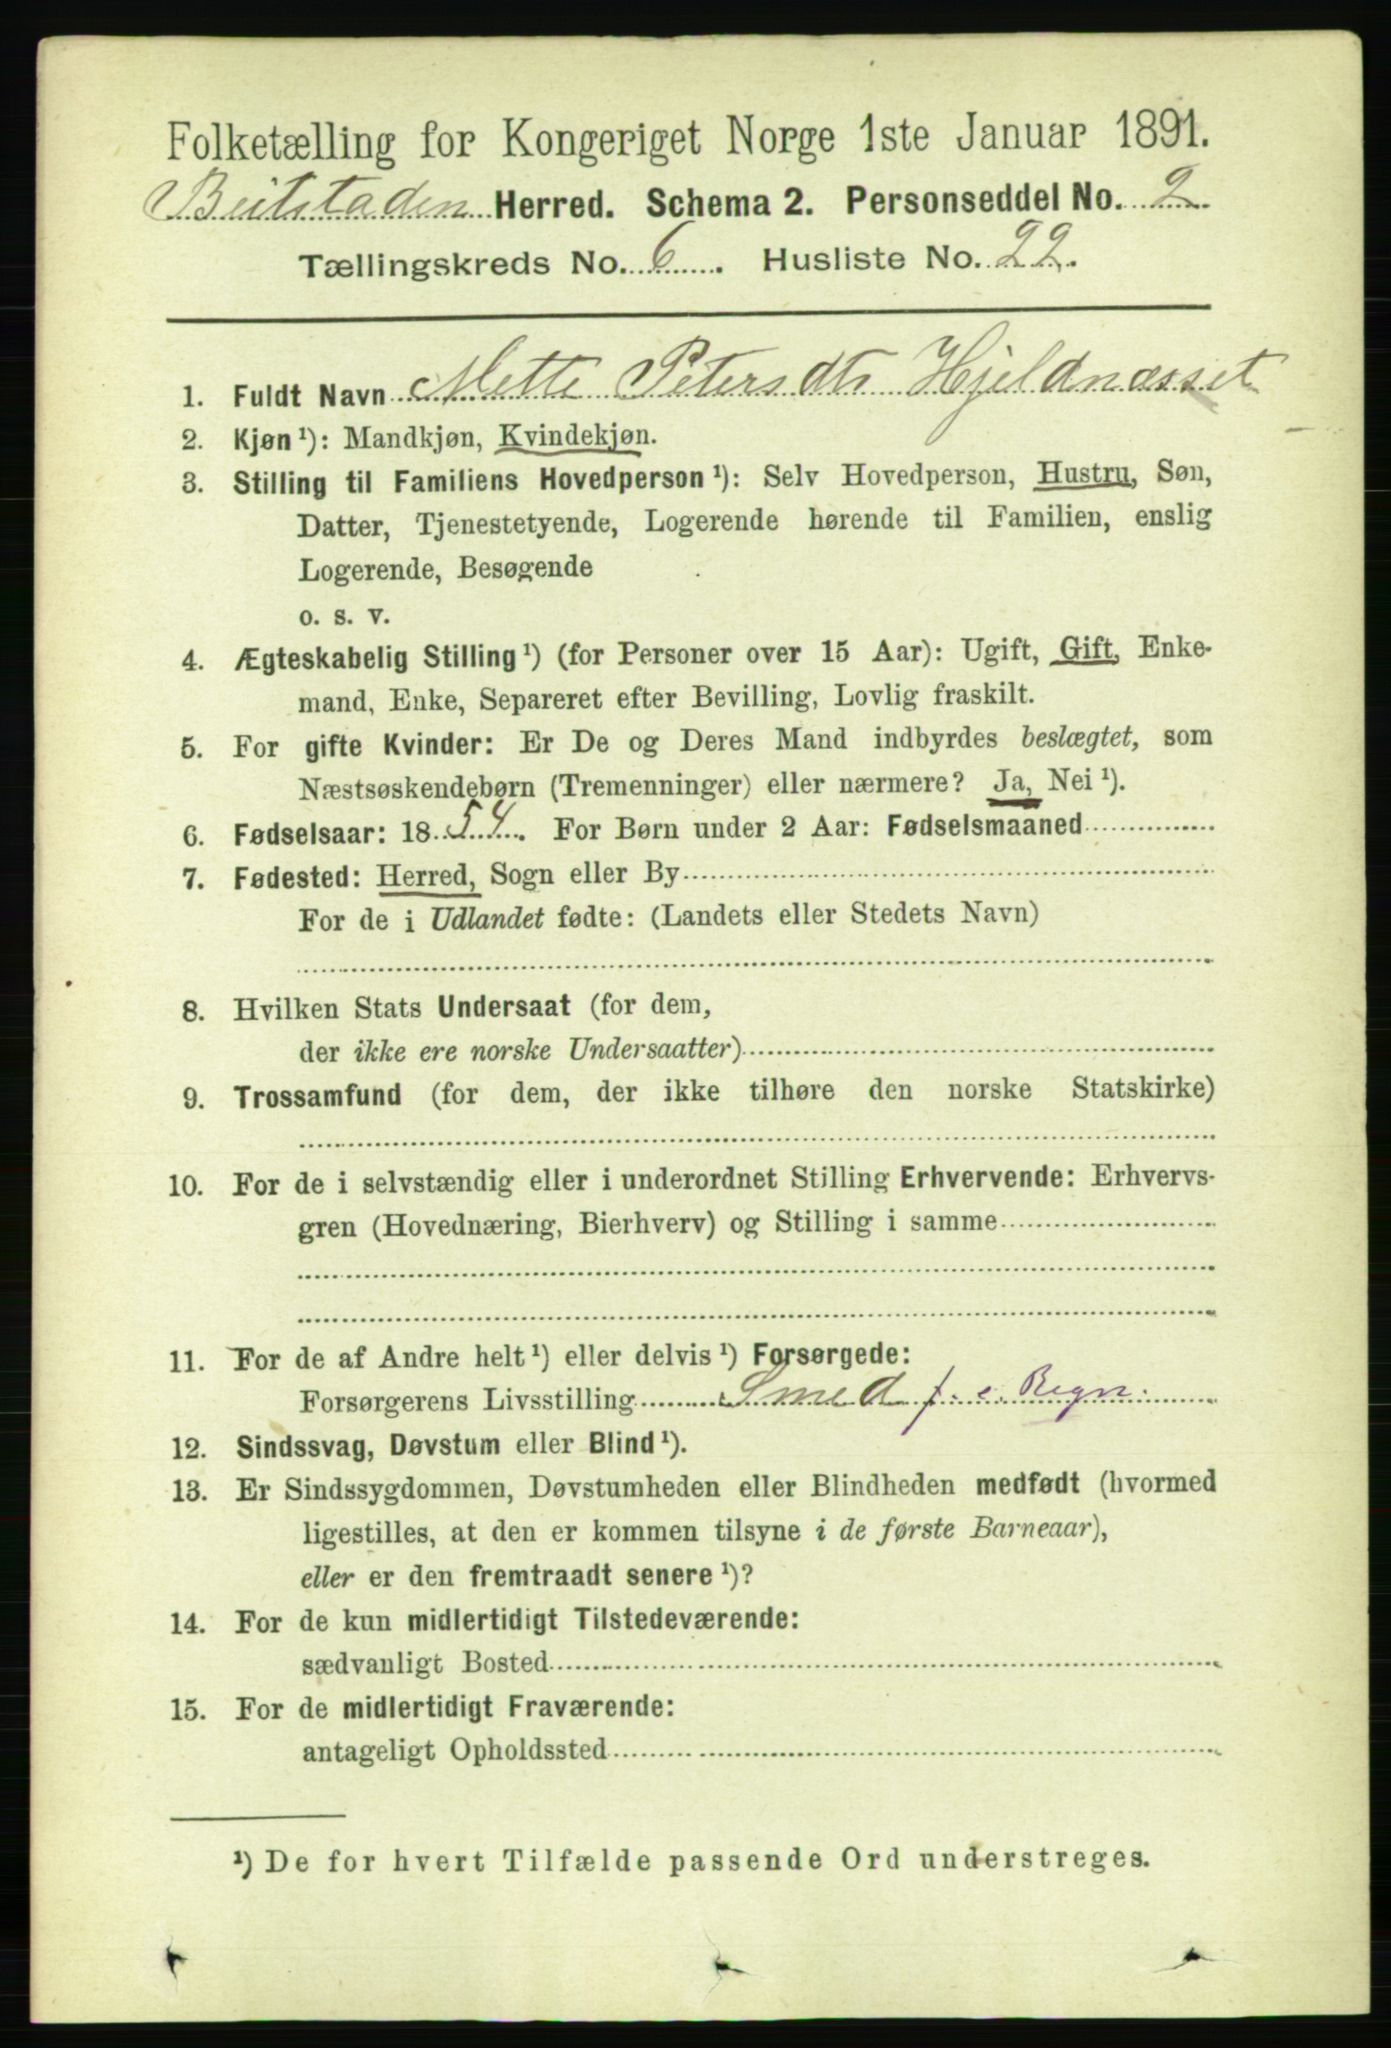 Folketælling for Kongeriget Norge 1ste Januar 1891.
Beitstaden Herred. Schema 2. Personseddel No. 2
Tællingskreds No. 6. Husliste No. 22.
1. Fuldt Navn Mette Petersdtr Hjeldnæsset
2. Kjøn¹): Mandkjøn, Kvindekjøn.
3. Stilling til Familiens Hovedperson¹): Selv Hovedperson, Hustru, Søn,
Datter, Tjenestetyende, Logerende hørende til Familien, enslig
Logerende, Besøgende
o. s. v.
4. Ægteskabelig Stilling¹) (for Personer over 15 Aar): Ugift, Gift, Enke-
mand, Enke, Separeret efter Bevilling, Lovlig fraskilt.
5. For gifte Kvinder: Er De og Deres Mand indbyrdes beslægtet, som
Næstsøskendebørn (Tremenninger) eller nærmere? Ja, Nei¹).
6. Fødselsaar: 1854. For Børn under 2 Aar: Fødselsmaaned
7. Fødested: Herred, Sogn eller By
For de i Udlandet fødte: (Landets eller Stedets Navn)
8. Hvilken Stats Undersaat (for dem,
der ikke ere norske Undersaatter)
9. Trossamfund (for dem, der ikke tilhøre den norske Statskirke)
10. For de i selvstændig eller i underordnet Stilling Erhvervende: Erhvervs-
gren (Hovednæring, Bierhverv) og Stilling i samme
11. For de af Andre helt¹) eller delvis¹) Forsørgede:
Forsørgerens Livsstilling Smed f. e. Regn.
12. Sindssvag, Døvstum eller Blind¹).
13. Er Sindssygdommen, Døvstumheden eller Blindheden medfødt (hvormed
ligestilles, at den er kommen tilsyne i de første Barneaar),
eller er den fremtraadt senere¹)?
14. For de kun midlertidigt Tilstedeværende:
sædvanligt Bosted
15. For de midlertidigt Fraværende:
antageligt Opholdssted
¹) De for hvert Tilfælde passende Ord understreges.